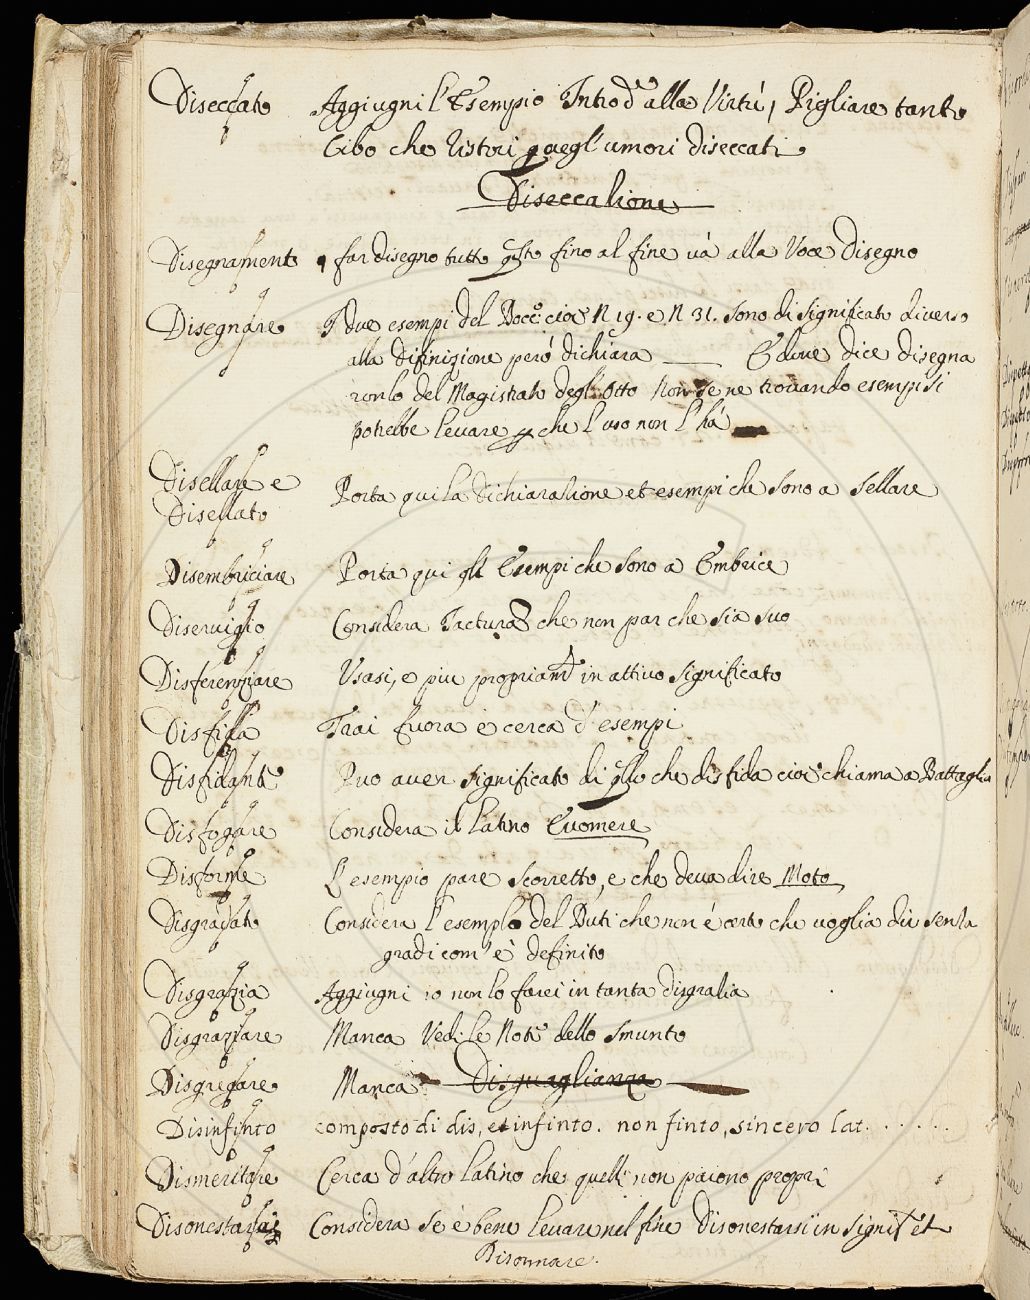 Diseccato Aggiugni l'Esempio Introd.e alla Virtù, Pigliare tanto
Cibo che ristori quegl'umori diseccati
Diseccazione
Disegnamento far disegno tutto questo fino al fine và alla Voce Disegno
Disegnare I due esempi del Bocc.o cioè N 19. e N 31. sono di significato diverso
alla Difinizione però dichiara E dove dice disegna
ronlo del Magistrato degl'Otto Non se ne trovando esempi si
potrebbe levare che l'uso non l'hà
Disellare e
Disellato Porta qui la Dichiarazione et esempi che sono a Sellare
Disembriciare Porta qui gli Esempi che sono a Embrice
Diservigio Considera Jactura che non par che sia suo
Disferenziare Usasi, e piu propriam.te in attivo significato
Disfilla Trai fuora e cerca d'esempi
Disfidante Puo aver significato di qllo che disfida cioè chiama a Battaglia
Disfogare Considera il latino Evomere
Disforme L'esempio pare scorretto, e che deva dire Moto
Disgradato Considera l'esemplo del Buti che non é certo che voglia dir senza
gradi com'è definito
Disgrazia Aggiugni io non lo farei in tanta disgrazia
Disgraziare Manca Vedi le Note dello Smunto
Disgregare Manca Disguaglianza
Disinfinto composto di dis, et infinto. non finto, sincero lat. . . . . . .
Dismeritare Cerca d'altro latino che quelli non paiono propri
Disonestarsi Considera se è bene levare nel fine Disonestarsi in signif et
Disonnare.